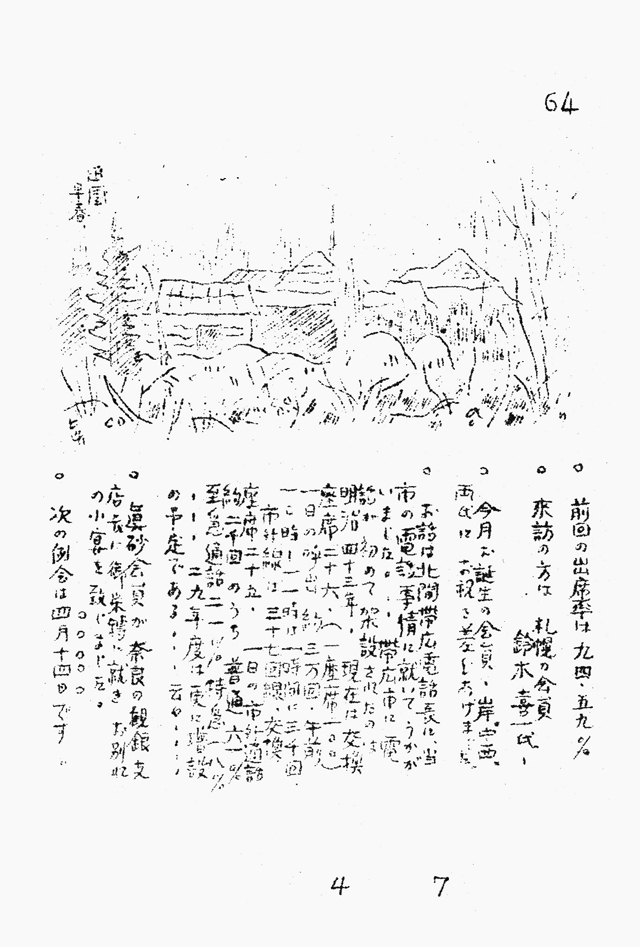 64
早春
○ 前回の出席率は九四、五九%
○ 来訪の方は 札幌の会員
鈴木喜一氏、
○ 今月お誕生の会員、岸、中西、
両氏に お祝を差をあげました
○ お話は北間帯広電話長に、当
市の電話事情に就いてうかが
いました。 帯広市に電
話が初めて架設されたのは
明治四十三年、現在は交換
座席二十六、(一座席一〇〇)
一日の呼出 約三万回、午前
一〇時—一一時は一時間に三千回
市外線は三十七回線、交換
座席二十五、一日の市外通話
約二千回 のうち 普通六一%
至急通話二一%特急一八%
二九年度は一度に増設
の予定である・・・云々・・・・
○ 眞砂会員が 奈良の観銀支
店長に御栄轉に就き お別れ
の小宴を致しました。
○○○○○
○ 次の例会は四月十四日です。
4 7